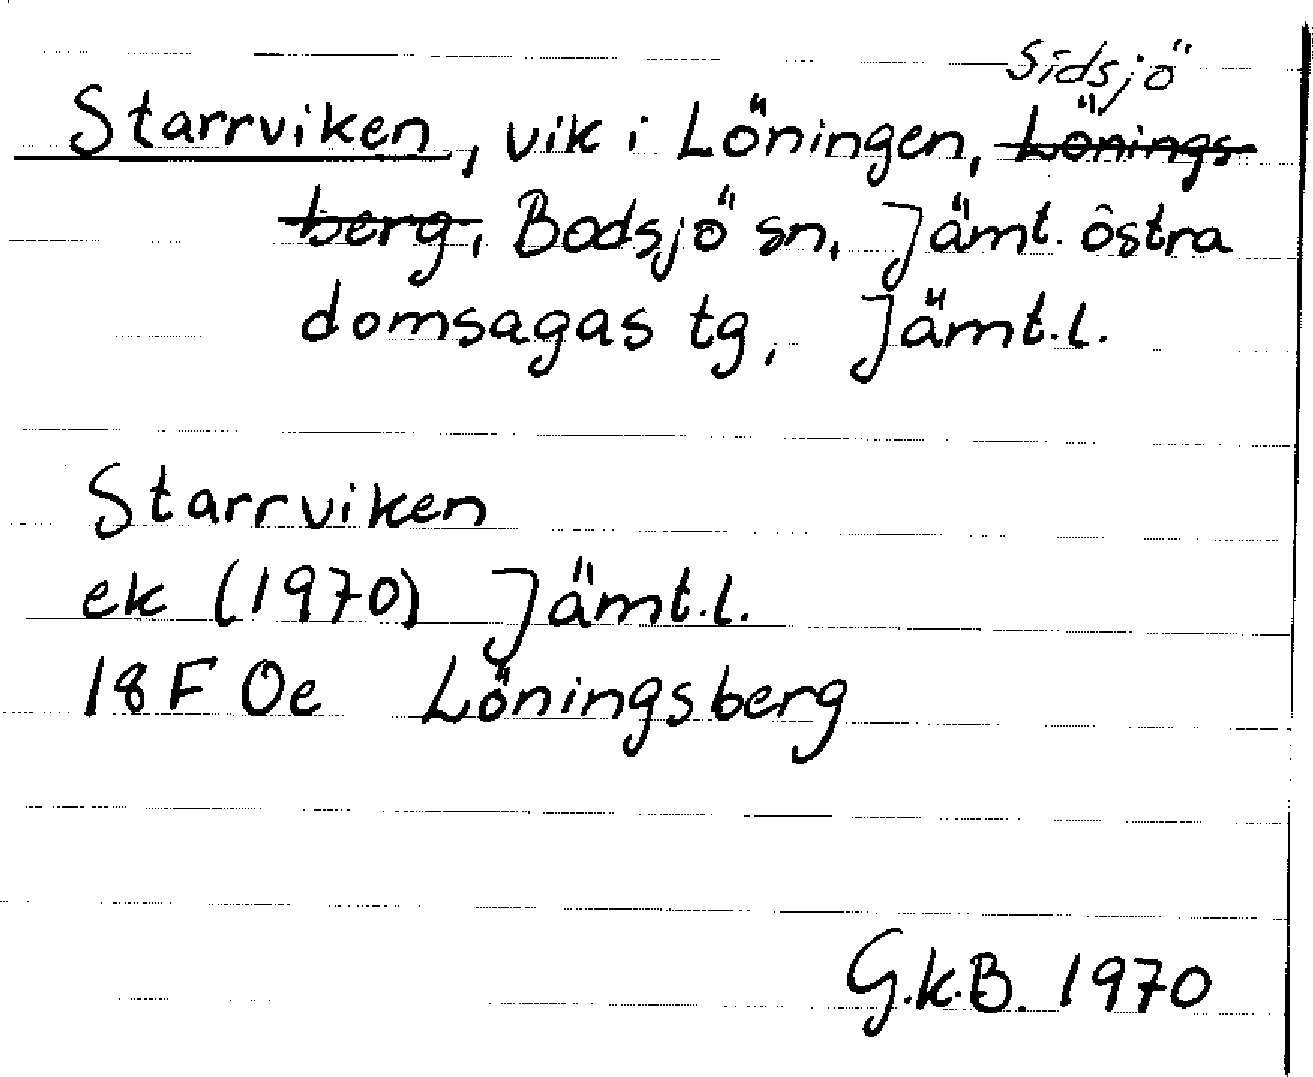 Sidsjö
Starrviken, vik i Löningen, Lönings
berg, Bodsjö sn, Jämt. östra
domsagas tg, Jämt.l.
Starrviken
ek (1970) Jämt.l.
18F Oe Löningsberg
G.K.B. 1970